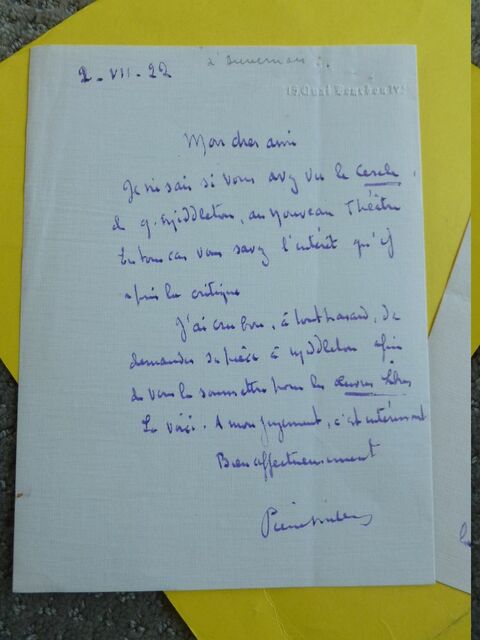 2-VII-22
à Duvernois
15, Quai Bourbon IVᵉ
Mon cher ami
Je ne sais si vous avez vu le Cercle,
d G. Middleton, au nouveau Théâtre
En tous cas vous savez l'intérêt qu'y
a pris la critique
J'ai cru bon, à tout hasard, de
demander sa pièce à Middleton afin
de vous la soumettre pour les Œuvres Libres
La voici. A mon jugement, c'est intéressant
Bien affectueusement